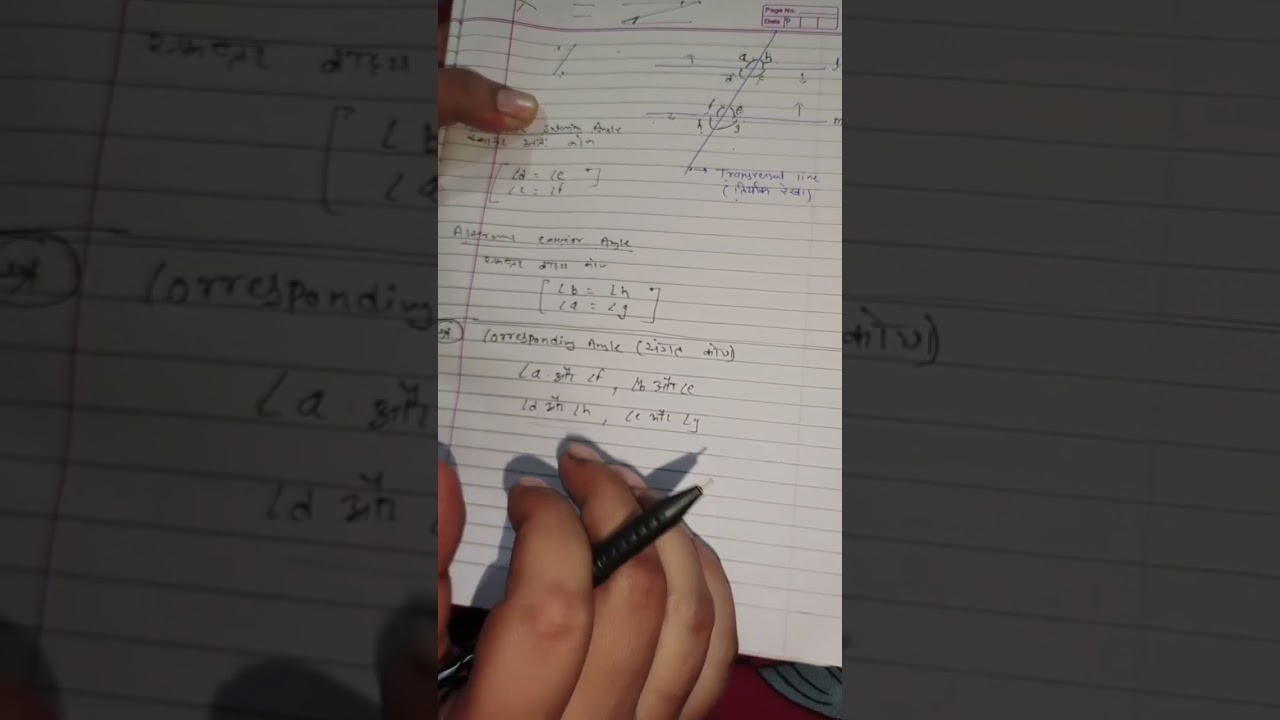 Page No.
Date
a b
d c
l
f e
h g
m
Transversal line
(तिर्यक रेखा)
Interior Angle
एकान्तर अंतः कोण
∠d = ∠e
∠c = ∠f
Exterior Angle
एकान्तर बाह्य कोण
∠b = ∠h
∠a = ∠g
Corresponding Angle (संगत कोण)
∠a और ∠f, ∠b और ∠e
∠d और ∠h, ∠c और ∠g